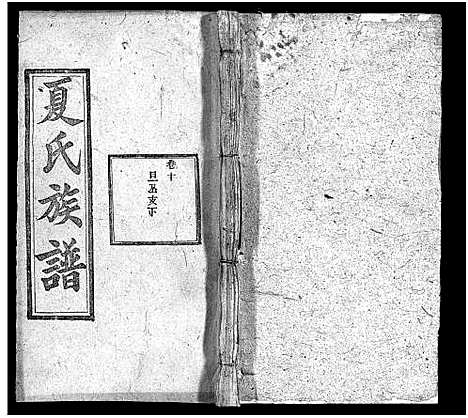 夏氏族譜
卷十
旦公支下